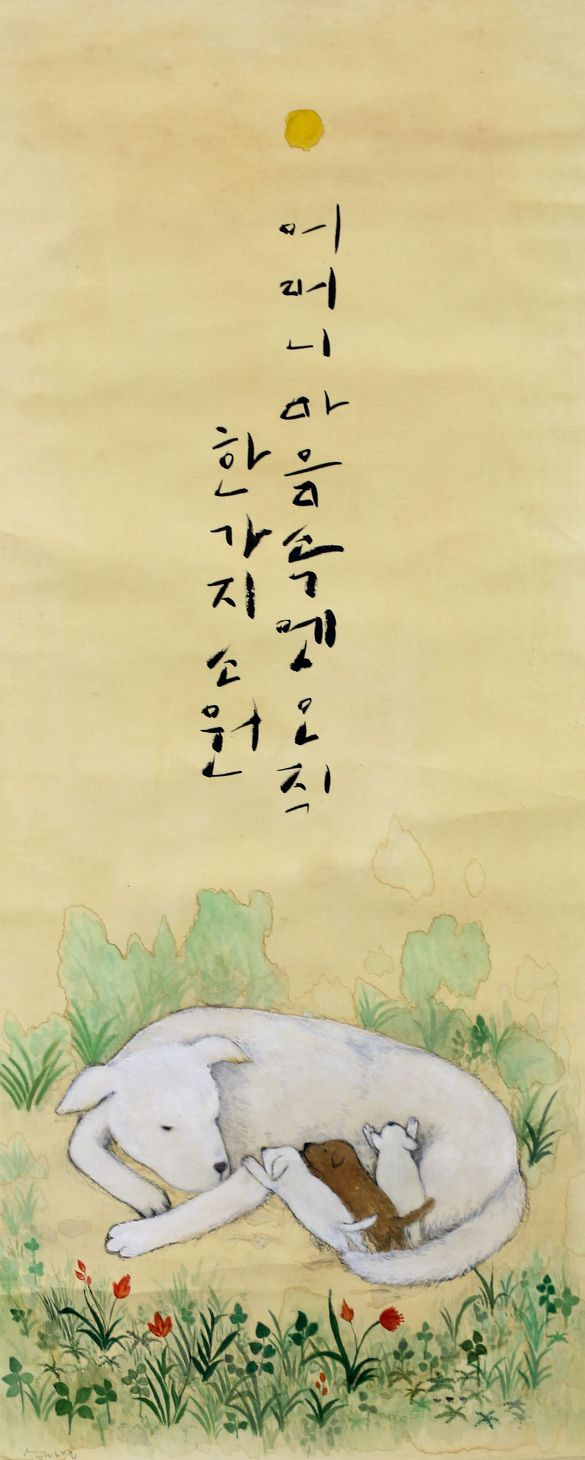 어머니 마음 속엔 오직
한가지 소원